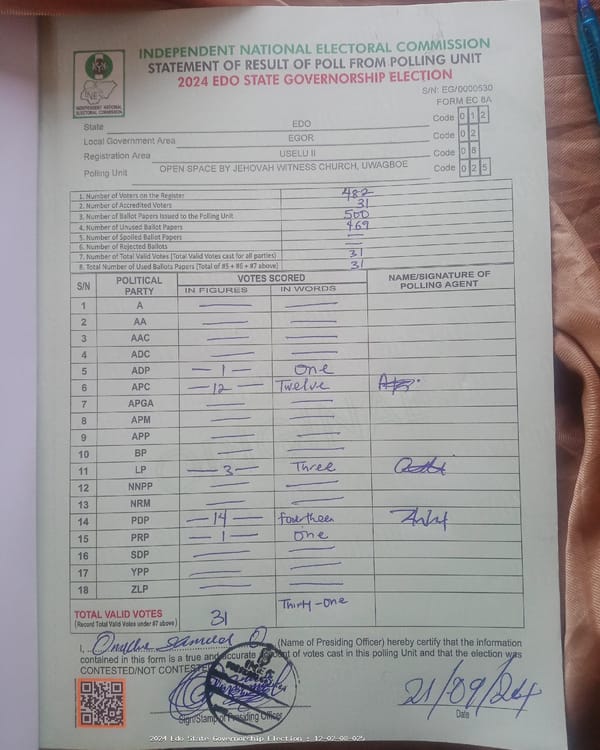 INDEPENDENT NATIONAL ELECTORAL COMMISSION
STATEMENT OF RESULT OF POLL FROM POLLING UNIT
2024 EDO STATE GOVERNORSHIP ELECTION
INDEPENDENT NATIONAL ELECTORAL COMMISSION
S/N: EG/0000530
FORM EC 8A
State EDO Code 0 1 2
Local Government Area EGOR Code 0 2
Registration Area USELU II Code 0 8
Polling Unit OPEN SPACE BY JEHOVAH WITNESS CHURCH, UWAGBOE Code 0 2 5
1. Number of Voters on the Register 482
2. Number of Accredited Voters 31
3. Number of Ballot Papers Issued to the Polling Unit 500
4. Number of Unused Ballot Papers 469
5. Number of Spoiled Ballot Papers —
6. Number of Rejected Ballots —
7. Number of Total Valid Votes (Total Valid Votes cast for all parties) 31
8. Total Number of Used Ballots Papers (Total of #5 + #6 + #7 above) 31
S/N POLITICAL PARTY VOTES SCORED NAME/SIGNATURE OF POLLING AGENT
IN FIGURES IN WORDS
1 A — —
2 AA — —
3 AAC — —
4 ADC — —
5 ADP — 1 — One
6 APC — 12 — Twelve
7 APGA — —
8 APM — —
9 APP — —
10 BP — —
11 LP — 3 — Three
12 NNPP — —
13 NRM — —
14 PDP — 14 — fourtheen
15 PRP — 1 — one
16 SDP — —
17 YPP — —
18 ZLP — —
TOTAL VALID VOTES 31 Thirty-one
(Record Total Valid Votes under #7 above)
I, (Name of Presiding Officer) hereby certify that the information
contained in this form is a true and accurate of votes cast in this polling Unit and that the election was
CONTESTED/NOT CONTESTED
21/09/24
Sign/Stamp of Presiding Officer Date
2024 Edo State Governorship Election : 12-02-08-025